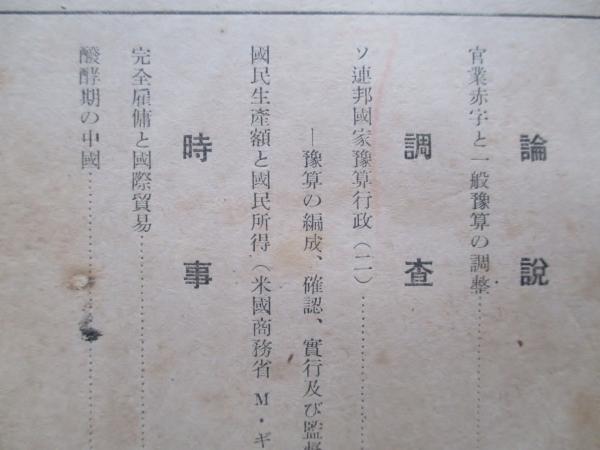 論説
官業赤字と一般豫算の調整……………
調査
ソ連邦國家豫算行政(二)……………
―豫算の編成、確認、實行及び監督
國民生產額と國民所得(米國商務省 M・ギ
時事
完全雇傭と國際貿易……………
醱酵期の中國……………